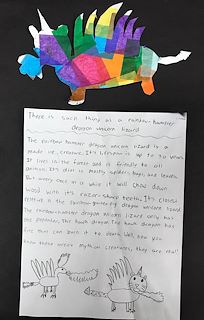 There is such thing as a rainbow-hamster
dragon unicorn lizard
The rainbow hamster dragon unicorn lizard is a
made up creature. It's lifespan is up to 70 years.
It lives in the forest and is friendly to all
animals. It's diet is mostly spiders, bugs, and lizards.
But every once in a while it will chow down
wood with it's razor-sharp teeth. It's closest
relative is the rainbow-butterfly dragon unicorn lizard.
The rainbow-hamster dragon unicorn lizard only has
one predator. The hawk dragon. The hawk dragon has
fire that can burn it to death. Well, now you
know these aren't mythical creatures, they are real!